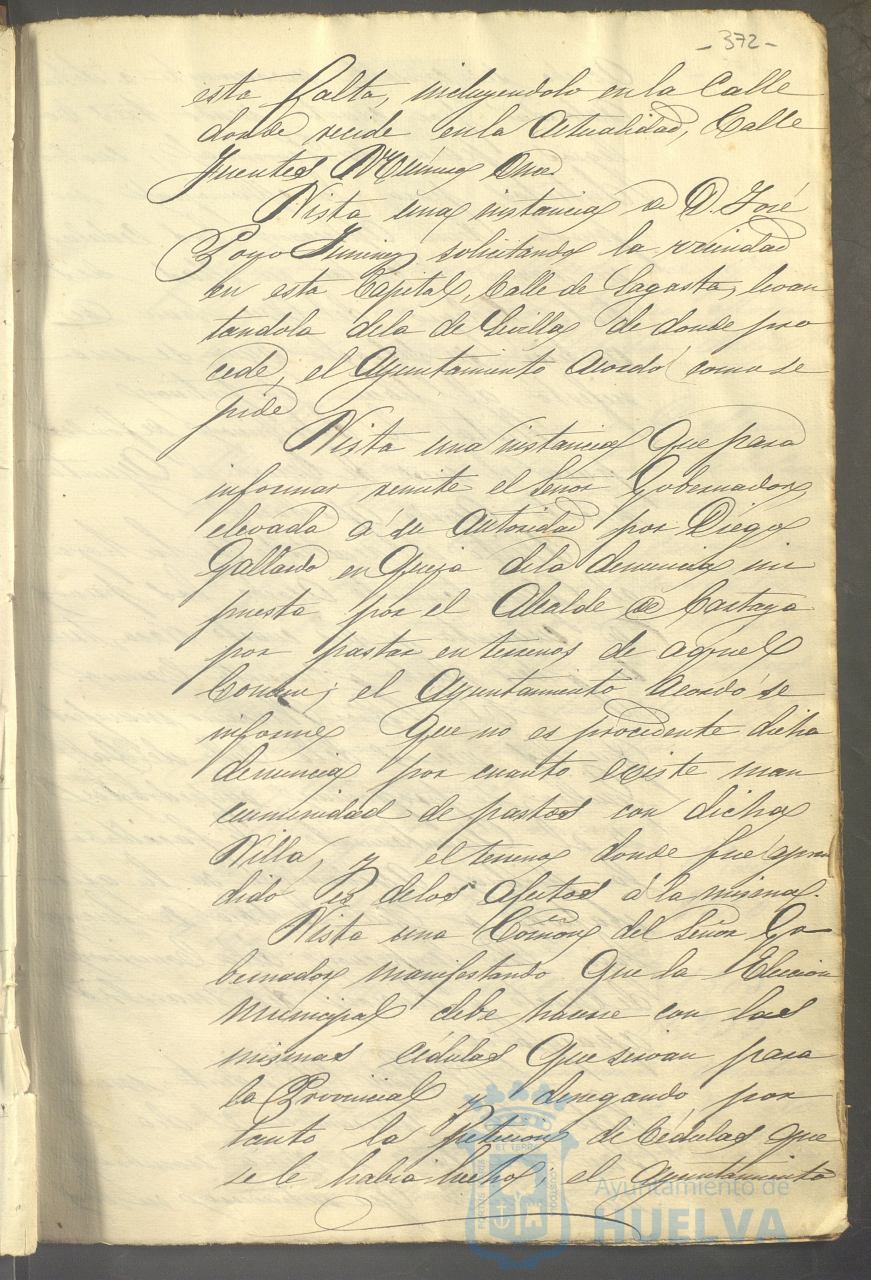 - 372 -
esta falta, incluyendolo en la Calle
donde recide en la Actualidad, Calle
Fuentes Número Once.
Vista una instancia de D. José
Poyo Jimenez solicitando la vecindad
en esta Capital, Calle de Sagasta, levan
tandola dela de Sevilla de donde pro
cede, el Ayuntamiento Acordó como se
pide
Vista una instancia que para
informar remite el Señor Gobernador
elevada á su Autoridad por Diego
Gallardo en Queja dela denuncia im
puesta por el Alcalde de Cartaya
por pastar en terrenos de aquel
Comun; el Ayuntamiento Acordó se
informe que no es procedente dicha
denuncia por cuanto existe man
cumunidad de pastos con dicha
Villa, y el terreno donde fue apren
dido es delos Afectos á la misma.
Vista una Comon del Señor Go
bernador manifestando que la Eleccion
Municipal debe hacerse con las
mismas cédulas que sirvan para
la Provincial y denegando por
tanto la peticion de Cédulas que
se le habia hecho; el Ayuntamiento
Ayuntamiento de
HUELVA